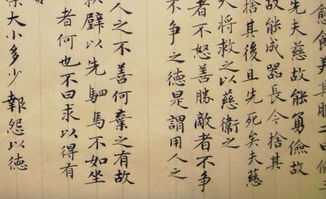 先夫慈故能勇儉故
故能成器長今捨其
捨其後且先死矣夫慈
天將救之以慈衛之
者不怒善勝敵者不爭
不爭之德是謂用人之
人之不善何棄之有故
璧以先駟馬不如坐
者何也不曰求以得有
大小多少報怨以德